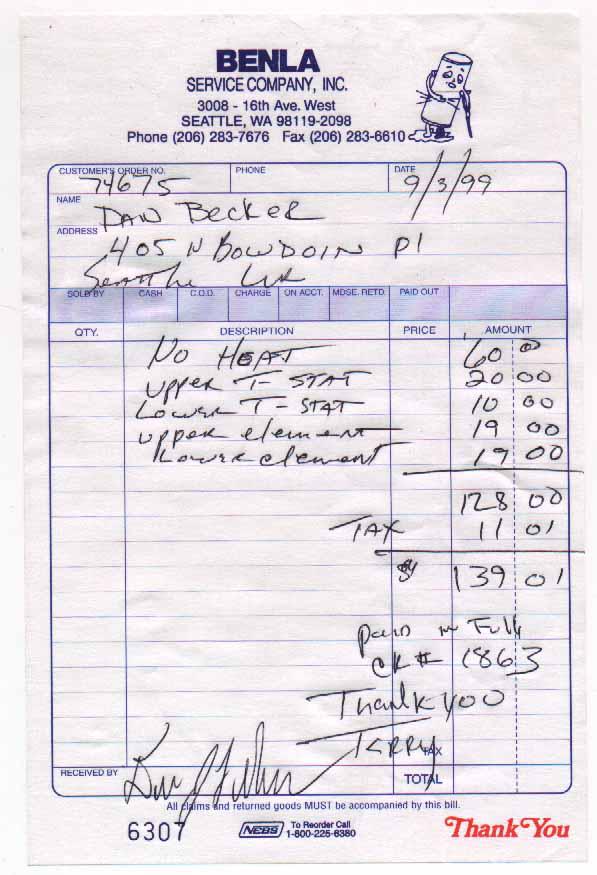 BENLA
SERVICE COMPANY, INC.
3008 - 16th Ave. West
SEATTLE, WA 98119-2098
Phone (206) 283-7676 Fax (206) 283-6610
CUSTOMER'S ORDER NO. 74675 PHONE DATE 9/3/99
NAME Dan Becker
ADDRESS 405 N Bowdoin Pl
Seattle WA
SOLD BY CASH C.O.D. CHARGE ON ACCT. MDSE. RETD. PAID OUT
QTY. DESCRIPTION PRICE AMOUNT
No HEAT 60 00
upper T-STAT 20 00
Lower T-STAT 10 00
upper element 19 00
Lower element 19 00
128 00
TAX 11 01
139 01
Paid in Full
CK# 1863
Thank you
Kerry
TAX
RECEIVED BY TOTAL
All claims and returned goods MUST be accompanied by this bill.
6307 NEBS To Reorder Call
1-800-225-6380
Thank You